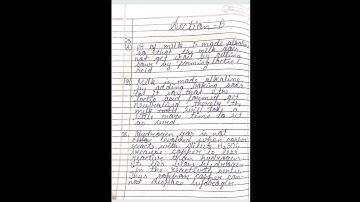 Section-B
(i) PH of milk is made alkaline
so that the milk does
not get spoil by getting
sour by forming lactic
acid
(ii) Milk is made alkaline
by adding baking soda
so the
lactic acid formed get
neutralised thereby the
milk will take a
little more time to set
as curd
26. Hydrogen gas is not
evolved when copper
reacts with dilute H2SO4
because copper is less
reactive than hydrogen
It lies below hydrogen
in the reactivity series
Thus copper can
not displace hydrogen